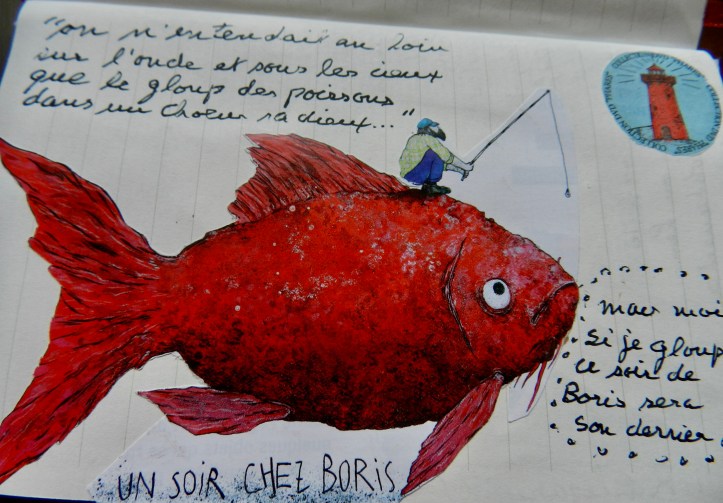 "on n'entendait au loin
sur l'onde et sous les cieux
que le gloup des poissons
dans un choeur radieux..."
mais moi
si je gloup
ce soir de
Boris sera
son dernier
UN SOIR CHEZ BORIS